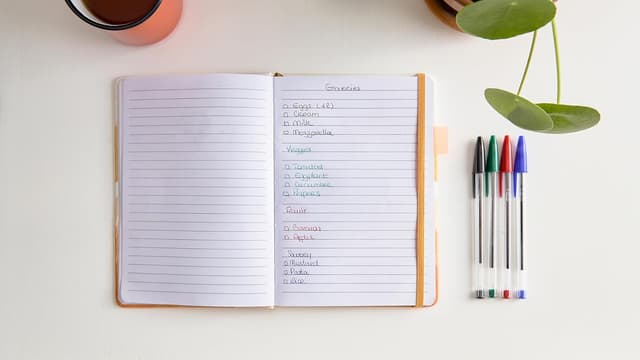 Groceries
□ Eggs (12)
□ Cream
□ Milk
□ Mozzarella
Veggies
□ Eggplant
□ Cucumber
Fruit
□ Banana
□ Apple
□ Mustard
□ Pasta
□ Rice